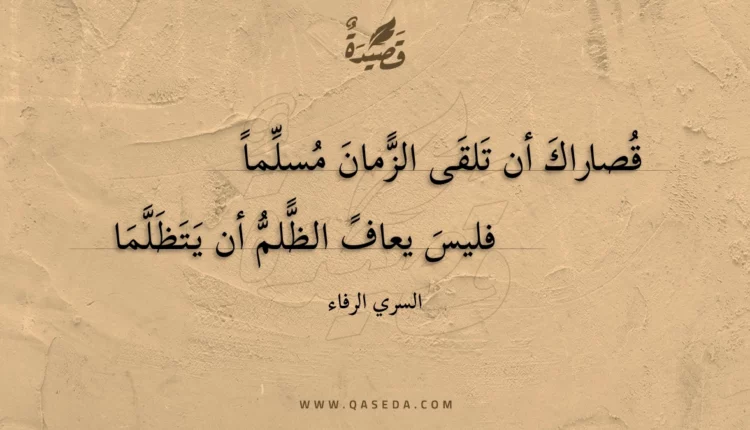 قَصِيْدَةٌ
قُصاراكَ أن تَلقَى الزًّمانَ مُسلِّماً
فليسَ يعافً الظًّلمُّ أن يَتَظَلَّمَا
السري الرفاء
WWW.QASEDA.COM